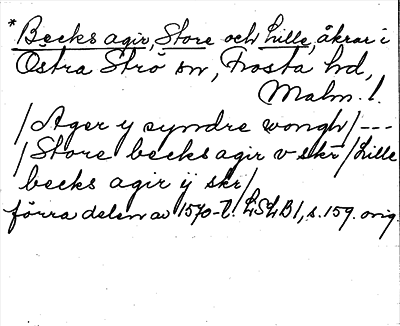 *Becks agir, Store och Lille, åkrar i
Östra Strö sn, Frosta hd,
Malm. l.
/Ager y syndre wongh/---
/Store becks agir v skr/Lille
becks agir ÿ skr/
förra delen av 1570-t. LSLB1, s. 159. orig.